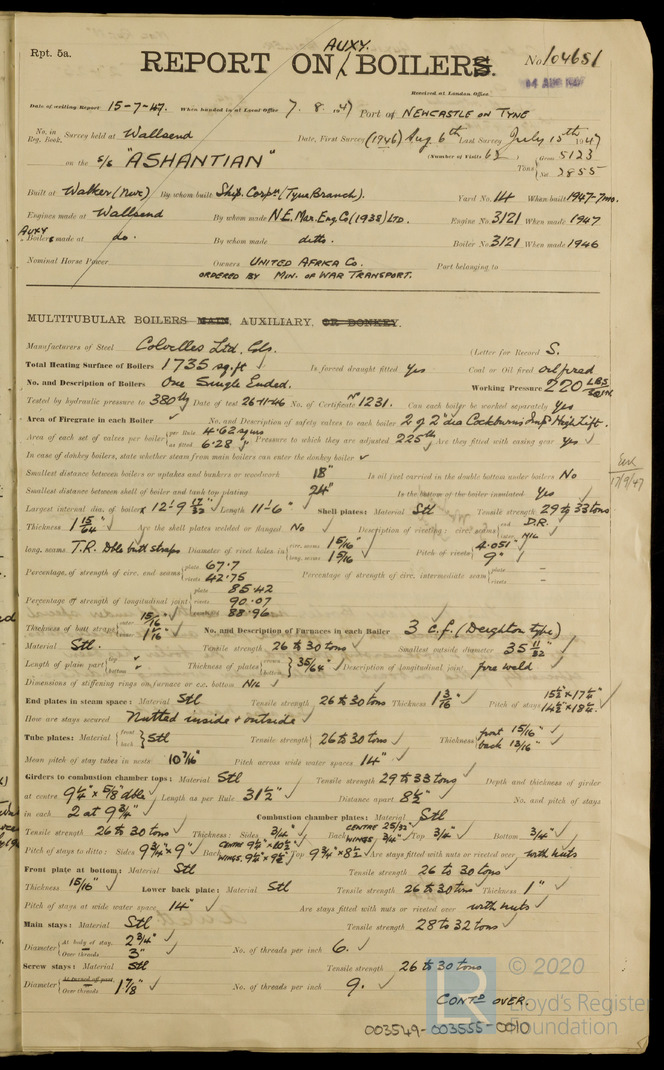 Rpt. 5a.
AUXY.
REPORT ON BOILERS.
No. 104681
Received at London Office
Date of writing Report 15-7-47. When handed in at Local Office 7. 8. 1947 Port of NEWCASTLE ON TYNE
No. in Reg. Book. Survey held at Wallsend Date, First Survey (1946) Aug 6th Last Survey July 15th 1947
(Number of Visits 62)
on the S/S "ASHANTIAN" Tons Gross 5123 Net 2855
Built at Walker (Nwc) By whom built Ship. Corpn (Tyne Branch). Yard No. 14 When built 1947-7mo.
Engines made at Wallsend By whom made N.E. Mar. Eng. Co (1938) LTD. Engine No. 3121 When made 1947
AUXY Boilers made at do. By whom made ditto. Boiler No. 3121 When made 1946
Nominal Horse Power Owners UNITED AFRICA Co. Port belonging to
ORDERED BY MIN. OF WAR TRANSPORT.
MULTITUBULAR BOILERS MAIN, AUXILIARY, OR DONKEY.
Manufacturers of Steel Colvilles Ltd. (Letter for Record S.
Total Heating Surface of Boilers 1735 sq.ft Is forced draught fitted Yes Coal or Oil fired oil fired
No. and Description of Boilers One Single Ended. Working Pressure 220 LBS
Tested by hydraulic pressure to 380 lbs Date of test 26-11-46 No. of Certificate No 1231. Can each boiler be worked separately Yes
Area of Firegrate in each Boiler No. and Description of safety valves to each boiler 2 of 2" dia Cockburns Impd High Lift.
Area of each set of valves per boiler per Rule 4.62 as fitted 6.28 Pressure to which they are adjusted 225 lb Are they fitted with easing gear Yes
In case of donkey boilers, state whether steam from main boilers can enter the donkey boiler
Smallest distance between boilers or uptakes and bunkers or woodwork 18" Is oil fuel carried in the double bottom under boilers No
Smallest distance between shell of boiler and tank top plating 24" Is the bottom of the boiler insulated Yes
Largest internal dia. of boilers 12'-9 17/32" Length 11'-6" Shell plates: Material Stl Tensile strength 29 to 33 tons
Thickness 1 15/64" Are the shell plates welded or flanged No Description of riveting: circ. seams end D.R. inter Nil
long. seams T.R. Dble butt straps Diameter of rivet holes in circ. seams 1 5/16" long. seams 1 5/16" Pitch of rivets 4.051" 9"
Percentage of strength of circ. end seams plate 67.7 rivets 42.75 Percentage of strength of circ. intermediate seam plate - rivets -
Percentage of strength of longitudinal joint plate 85.42 rivets 90.07 combined 88.96
Thickness of butt straps outer 15/16" inner 1 1/16" No. and Description of Furnaces in each Boiler 3 C.f. (Deighton type)
Material Stl. Tensile strength 26 to 30 tons Smallest outside diameter 35 11/32"
Length of plain part top bottom Thickness of plates crown bottom 35/64" Description of longitudinal joint fire weld
Dimensions of stiffening rings on furnace or c.c. bottom Nil
End plates in steam space: Material Stl Tensile strength 26 to 30 tons Thickness 1 3/16" Pitch of stays 15 1/2" x 17 1/2" 14 1/2" x 18 1/2"
How are stays secured Nutted inside & outside
Tube plates: Material front back Stl Tensile strength 26 to 30 tons Thickness front 15/16" back 13/16"
Mean pitch of stay tubes in nests 10 7/16" Pitch across wide water spaces 14"
Girders to combustion chamber tops: Material Stl Tensile strength 29 to 33 tons Depth and thickness of girder
at centre 9 1/4" x 5/8" dble Length as per Rule 31 1/2" Distance apart 8 1/2" No. and pitch of stays
in each 2 at 9 3/4" Combustion chamber plates: Material Stl
Tensile strength 26 to 30 tons Thickness: Sides 3/4" Back CENTRE 25/32" WINGS 3/4" Top 3/4" Bottom 3/4"
Pitch of stays to ditto: Sides 9 3/4" x 9" Back CENTRE 9 1/2" x 10 1/2" WINGS 9 1/2" x 9 1/2" Top 9 3/4" x 8 1/2" Are stays fitted with nuts or riveted over with nuts
Front plate at bottom: Material Stl Tensile strength 26 to 30 tons
Thickness 15/16" Lower back plate: Material Stl Tensile strength 26 to 30 tons Thickness 1"
Pitch of stays at wide water space 14" Are stays fitted with nuts or riveted over with nuts
Main stays: Material Stl Tensile strength 28 to 32 tons
Diameter At body of stay, 2 3/4" Over threads 3" No. of threads per inch 6.
Screw stays: Material Stl Tensile strength 26 to 30 tons
Diameter At turned off part, Over threads 1 7/8" No. of threads per inch 9.
CONTD OVER.
17/9/47
© 2020
LR Lloyd's Register Foundation
003549-003555-0010